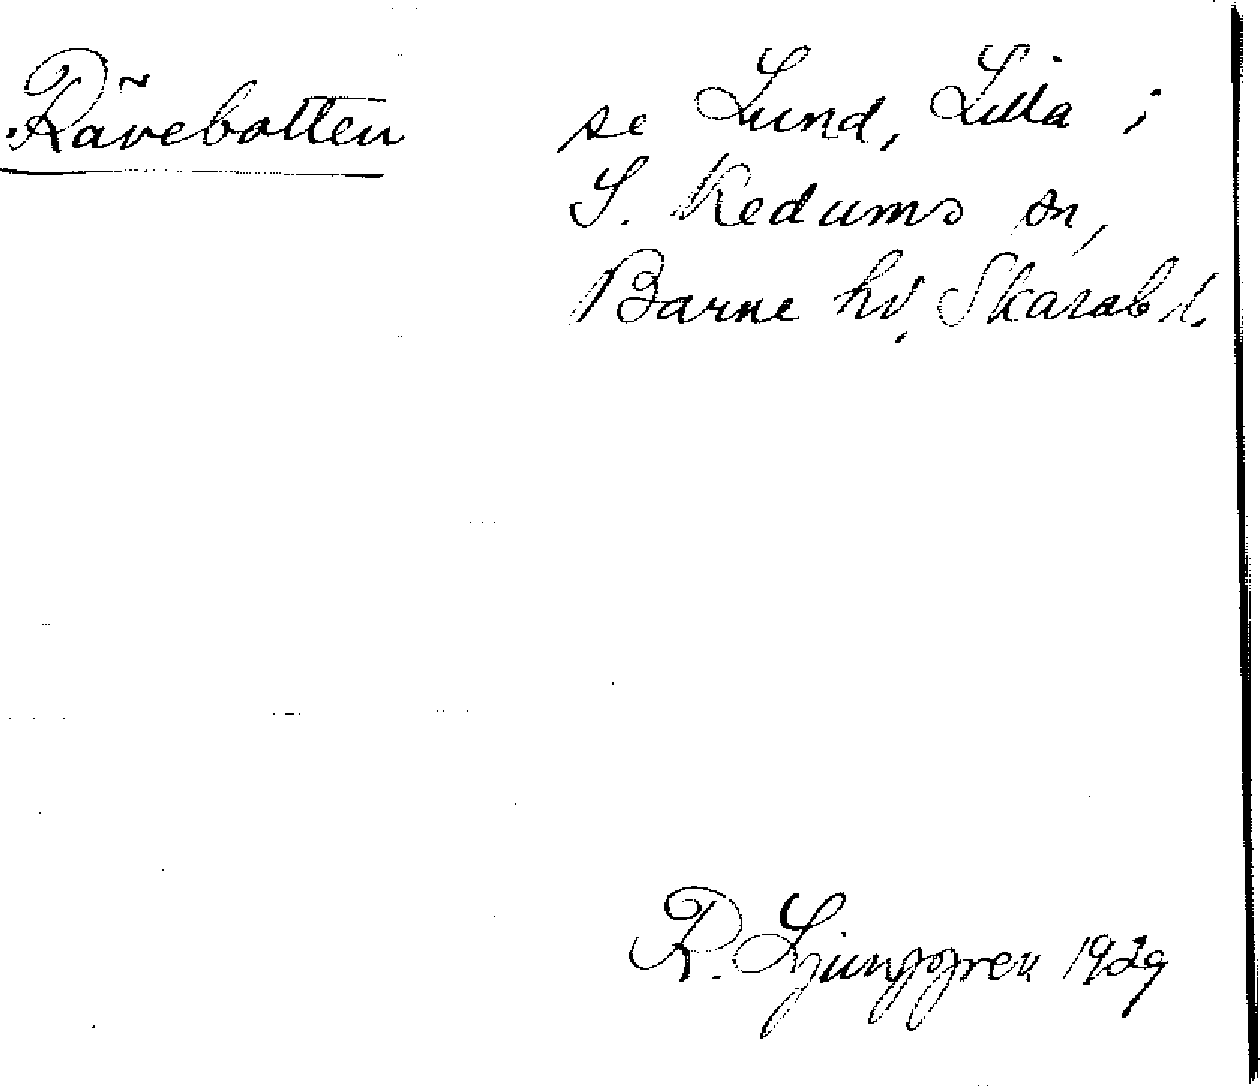 Rävebotten
se Lund, Lilla i
S. Kedums sn,
Barne hd, Skarab l.
R. Ljunggren 1929